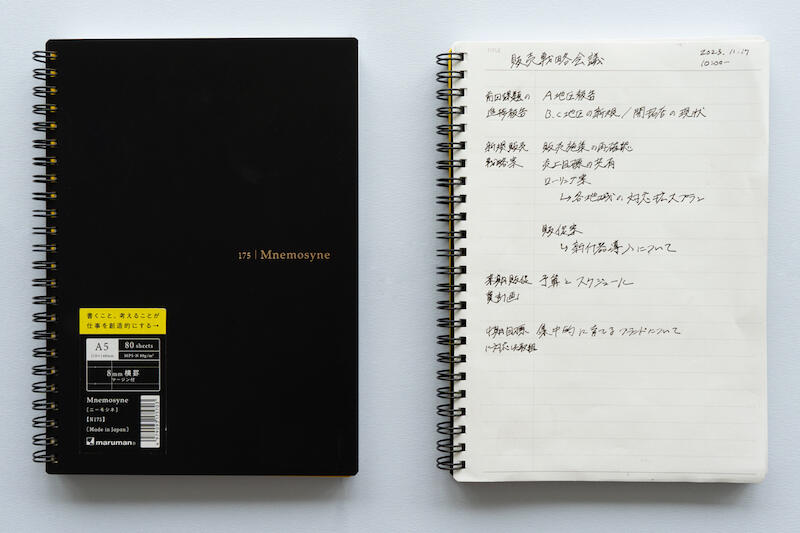 175 | Mnemosyne
書くこと、考えることが
仕事を創造的にする→
A5
80 sheets
8mm 横罫
マージン付
Mnemosyne
[ニーモシネ]
[N175]
(Made in Japan)
maruman
TITLE
販売戦略会議
2023.11.17
10:00〜
前回課題の A地区報告
進捗報告 B.C地区の新規/開拓店の現状
新規販売 販売施策の再確認
戦略案 売上目標の共有
ローリング案
↳各地域の対応
販促案
↳新什器導入について
来期販促 予算とスケジュール
費計画
中期目標 集中的に育てるブランドについて